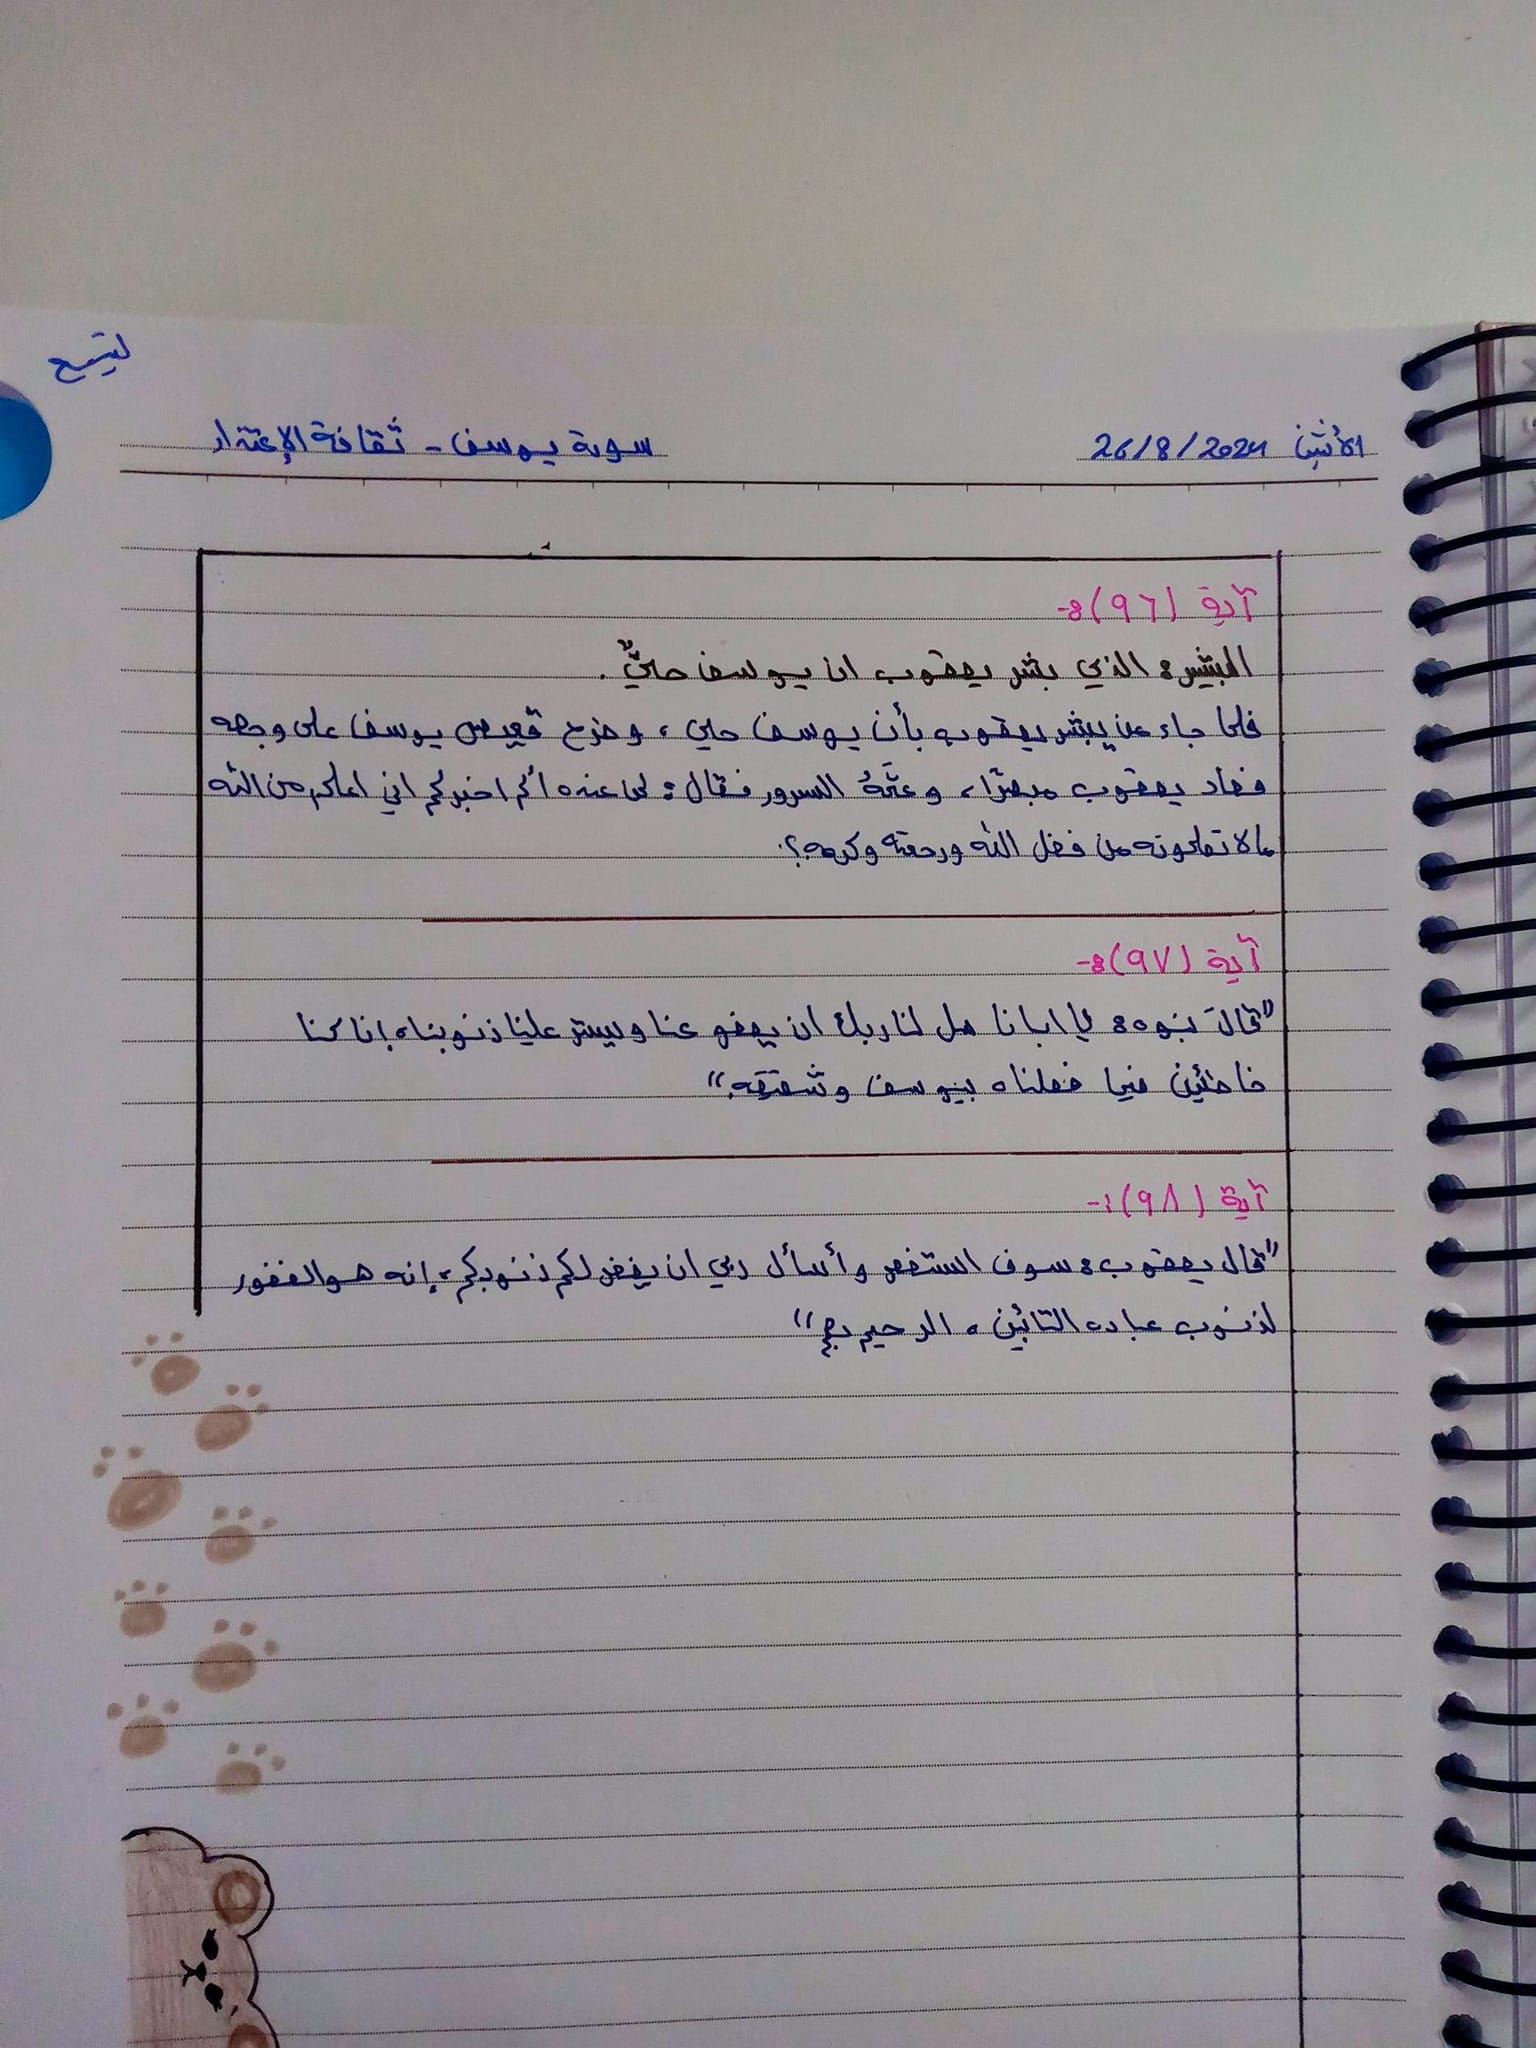 لتسبيح
الأثنين 26/8/2024 سورة يوسف - ثقافة الإعتذار
آية (٩٦) :-
البشير: الذي بشر يعقوب ان يوسف حيٌّ.
فلما جاء من يبشر يعقوب بأن يوسف حي، وطرح قميص يوسف على وجهه
فعاد يعقوب مبصرًا، وعمّهُ السرور فقال: لمن عنده ألم اخبركم اني اعلم من الله
مالا تعلمونه من فضل الله ورحمته وكرمه؟.
آية (٩٧) :-
"قال بنوه: يا ابانا سل لنا ربك ان يعفو عنا ويستر علينا ذنوبنا، إنا كنا
خاطئين فيما فعلناه بيوسف وشقيقه."
آية (٩٨) :-
"قال يعقوب: سوف استغفر وأسأل ربي ان يغفر لكم ذنوبكم، إنه هو الغفور
لذنوب عباده التائبين، الرحيم بهم"